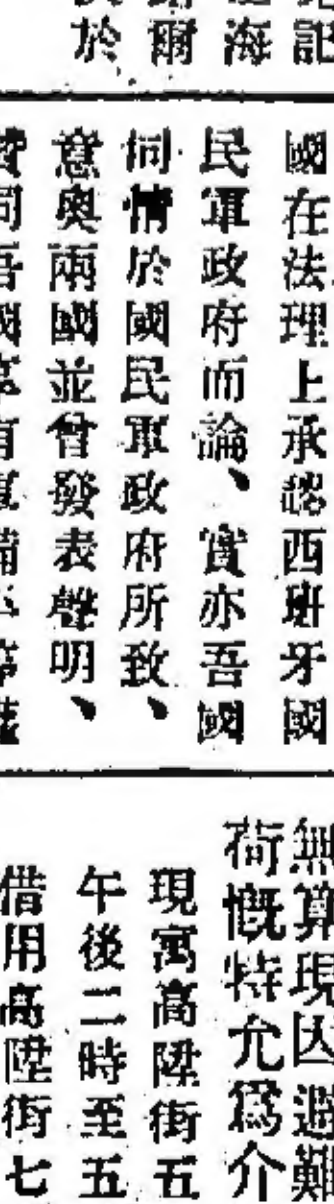 記
海
爾
於
國在法理上承認西班牙國
民軍政府而論、實亦吾國
同情於國民軍政府所致、
意奧兩國並曾發表聲明、
無算現因避難
荷慨特允爲介
現寓高陞街五
午後二時至五
借用高陞街七